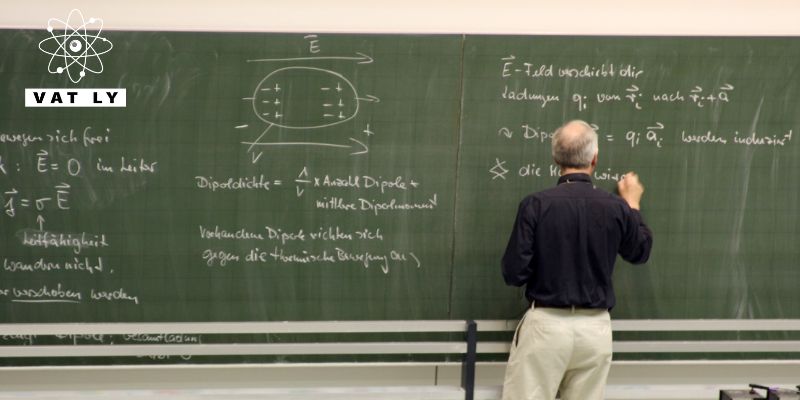 VAT LY
bewegen sich frei
: E⃗ = 0 im Leiter
j⃗ = σ E⃗
↑
Leitfähigkeit
wandern nicht,
verschoben werden
Dipole,
E⃗
- + - +
- + - +
- + - +
- +
V
Dipoldichte = 1/V × Anzahl Dipole ×
mittlere Dipolmoment
Vorhandene Dipole richten sich
gegen die thermische Bewegung aus
E⃗-Feld verschiebt die
Ladungen qᵢ von r⃗ᵢ nach r⃗ᵢ + a⃗
↷ = qᵢ a⃗ᵢ werden induziert
die